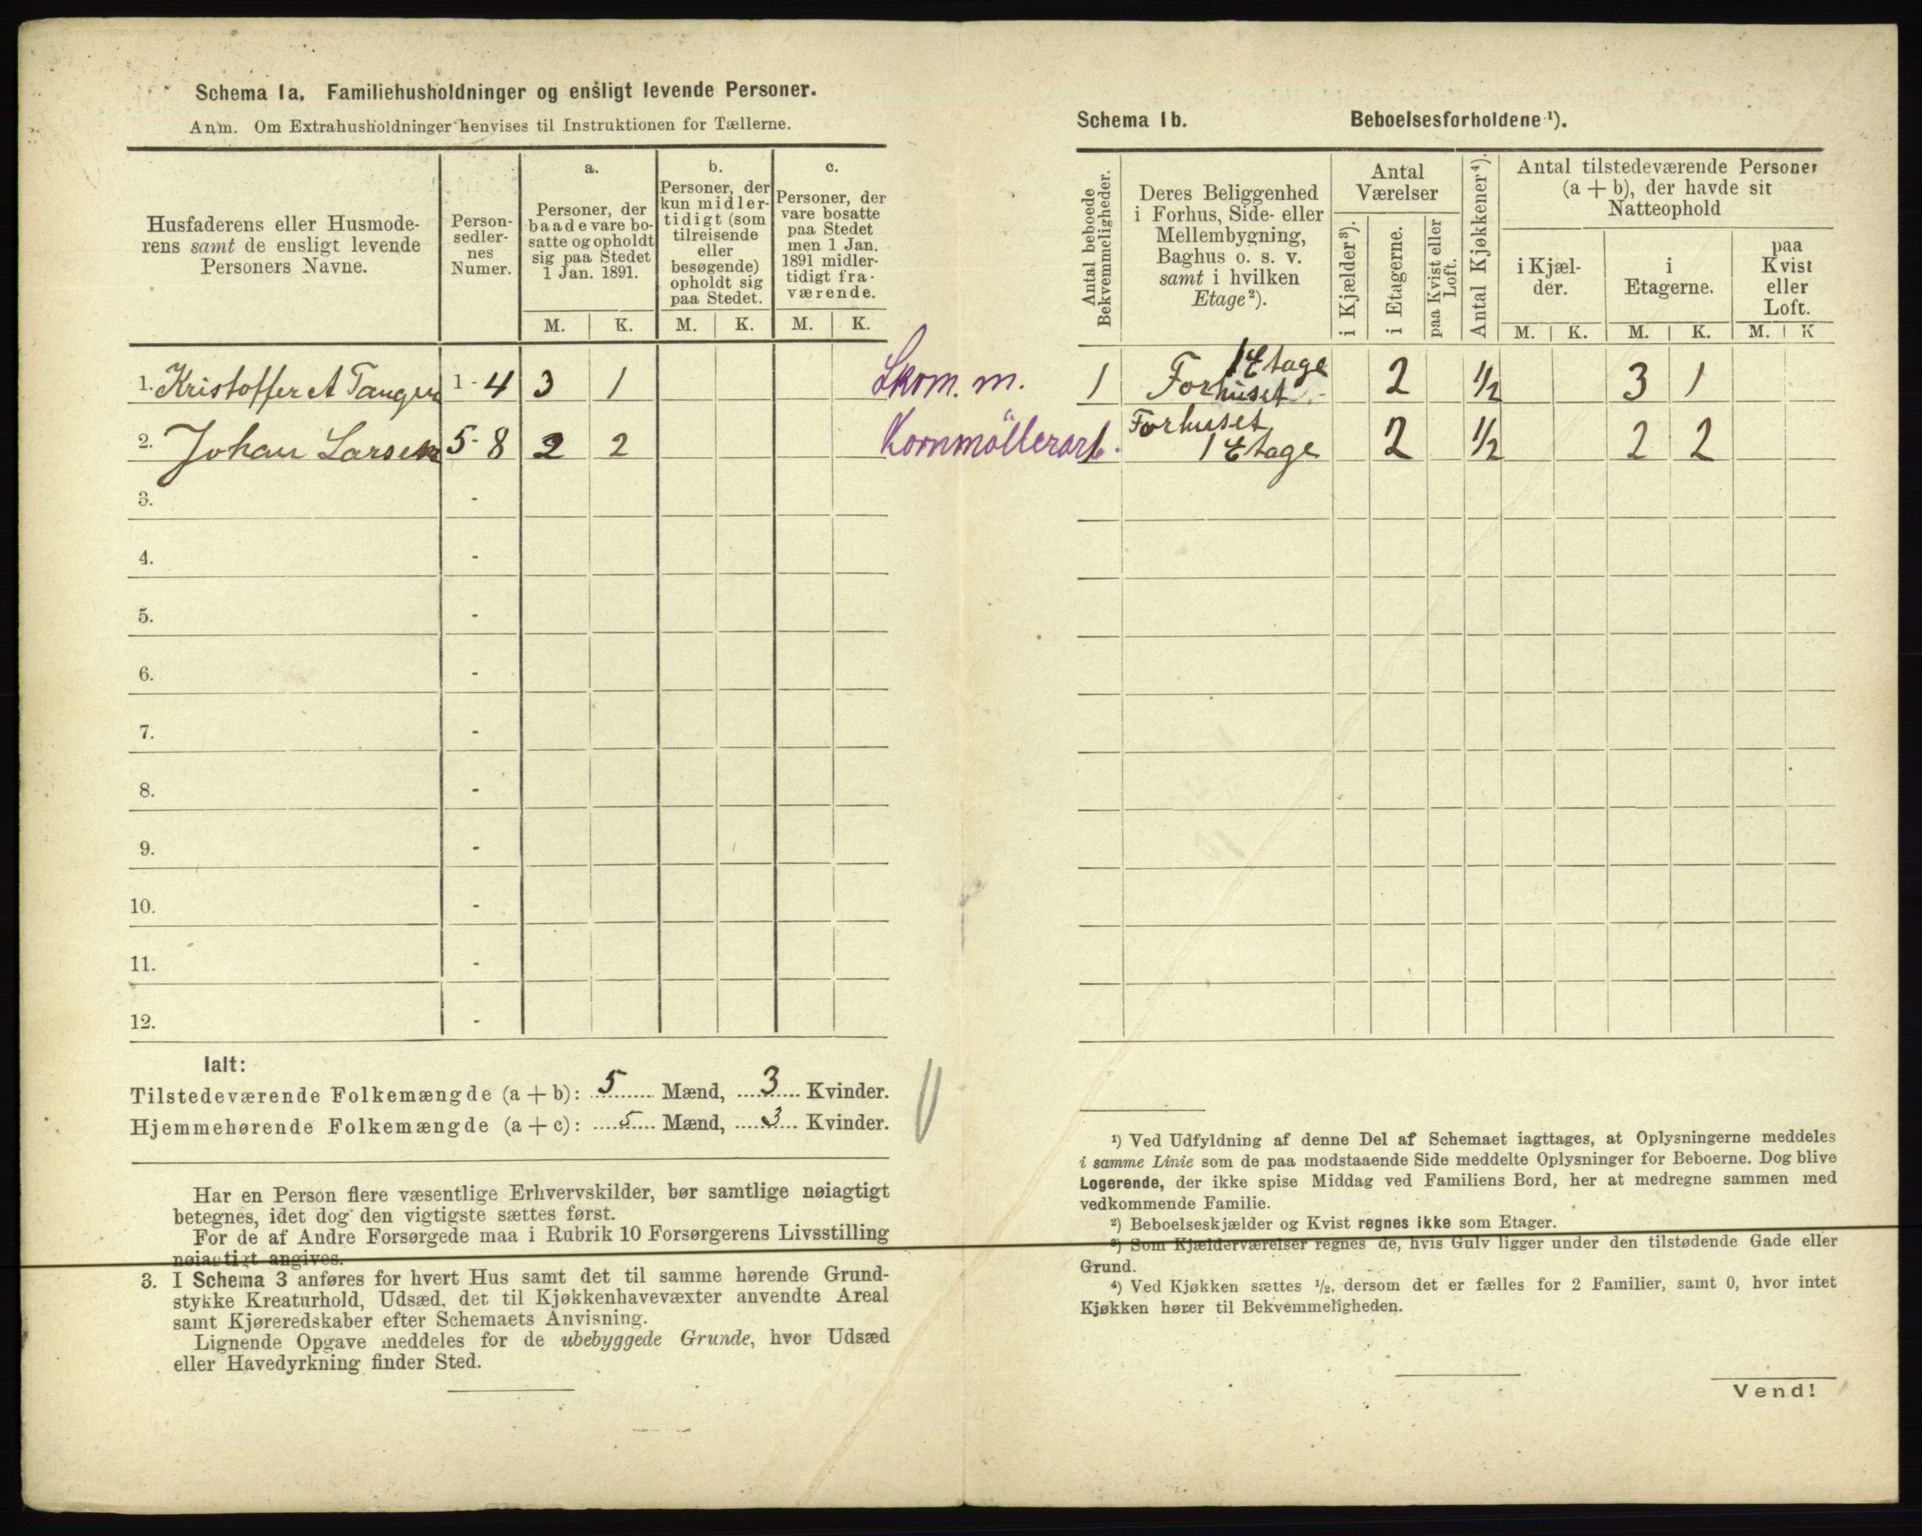 Schema 1a. Familiehusholdninger og ensligt levende Personer.
Anm. Om Extrahusholdninger henvises til Instruktionen for Tællerne.
Husfaderens eller Husmode-
rens samt de ensligt levende
Personers Navne.
Person-
sedler-
nes
Numer.
a.
Personer, der
baade vare bo-
satte og opholdt
sig paa Stedet
1 Jan. 1891.
M. K.
b.
Personer, der
kun midler-
tidigt (som
tilreisende
eller
besøgende)
opholdt sig
paa Stedet.
M. K.
c.
Personer, der
vare bosatte
paa Stedet
men 1 Jan.
1891 midler-
tidigt fra-
værende.
M. K.
1. Kristoffer A Tangen 1 - 4 3 1 Skom. m.
2. Johan Larsen 5 - 8 2 2 Kornmöllerarb.
3. -
4. -
5. -
6. -
7. -
8. -
9. -
10. -
11. -
12. -
Ialt:
Tilstedeværende Folkemængde (a + b): 5 Mænd, 3 Kvinder.
Hjemmehørende Folkemængde (a + c): 5 Mænd, 3 Kvinder.
Har en Person flere væsentlige Erhvervskilder, bør samtlige nøiagtigt
betegnes, idet dog den vigtigste sættes først.
For de af Andre Forsørgede maa i Rubrik 10 Forsørgerens Livsstilling
nøiagtigt angives.
3. I Schema 3 anføres for hvert Hus samt det til samme hørende Grund-
stykke Kreaturhold, Udsæd, det til Kjøkkenhavevæxter anvendte Areal
samt Kjøreredskaber efter Schemaets Anvisning.
Lignende Opgave meddeles for de ubebyggede Grunde, hvor Udsæd
eller Havedyrkning finder Sted.
Schema 1b. Beboelsesforholdene ¹).
Antal beboede
Bekvemmeligheder.
Deres Beliggenhed
i Forhus, Side- eller
Mellembygning,
Baghus o. s. v.
samt i hvilken
Etage ²).
Antal
Værelser
i Kjælder ³).
i Etagerne.
paa Kvist eller
Loft.
Antal Kjøkkener ⁴).
Antal tilstedeværende Personer
(a + b), der havde sit
Natteophold
i Kjæl-
der.
M. K.
i
Etagerne.
M. K.
paa
Kvist
eller
Loft.
M. K
1 Etage
1 Forhuset 2 1/2 3 1
Forhuset
1 1 Etage 2 1/2 2 2
¹) Ved Udfyldning af denne Del af Schemaet iagttages, at Oplysningerne meddeles
i samme Linie som de paa modstaaende Side meddelte Oplysninger for Beboerne. Dog blive
Logerende, der ikke spise Middag ved Familiens Bord, her at medregne sammen med
vedkommende Familie.
²) Beboelseskjælder og Kvist regnes ikke som Etager.
³) Som Kjælderværelser regnes de, hvis Gulv ligger under den tilstødende Gade eller
Grund.
⁴) Ved Kjøkken sættes ½, dersom det er fælles for 2 Familier, samt 0, hvor intet
Kjøkken hører til Bekvemmeligheden.
Vend!